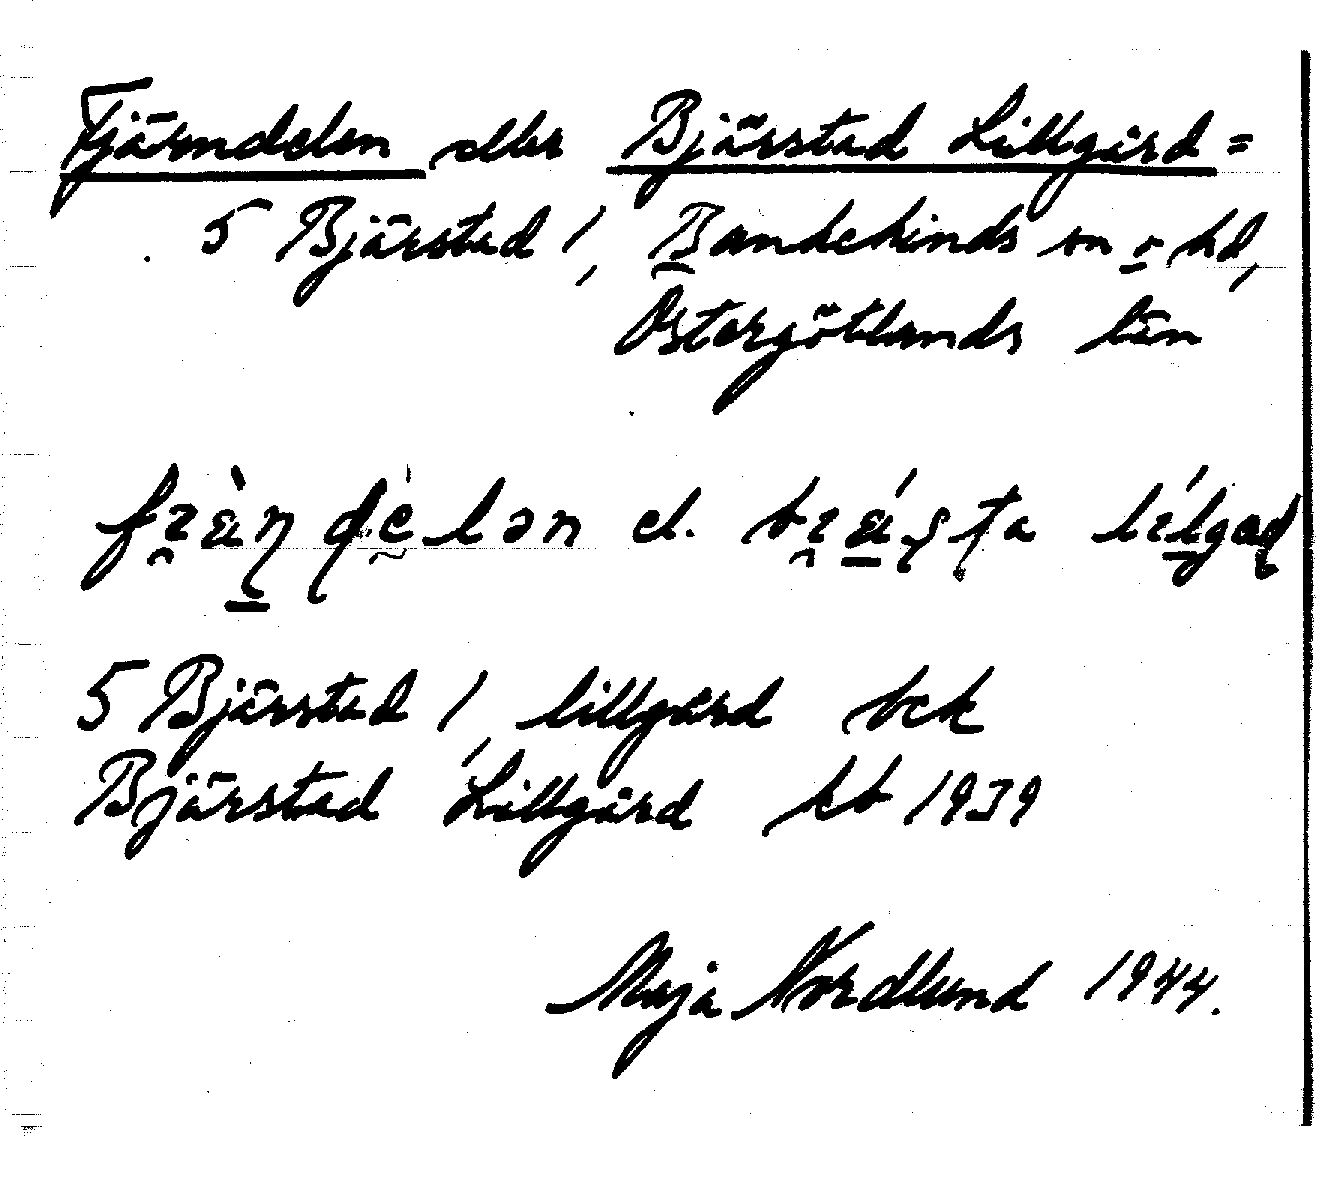 Fjärndelen eller Bjärstad Lillgård =
5 Bjärstad 1, Bandekinds sn o hd,
Östergötlands län
el.
5 Bjärstad 1 lillgård bek
Bjärstad Lillgård kb 1939
Maja Nordlund 1944.